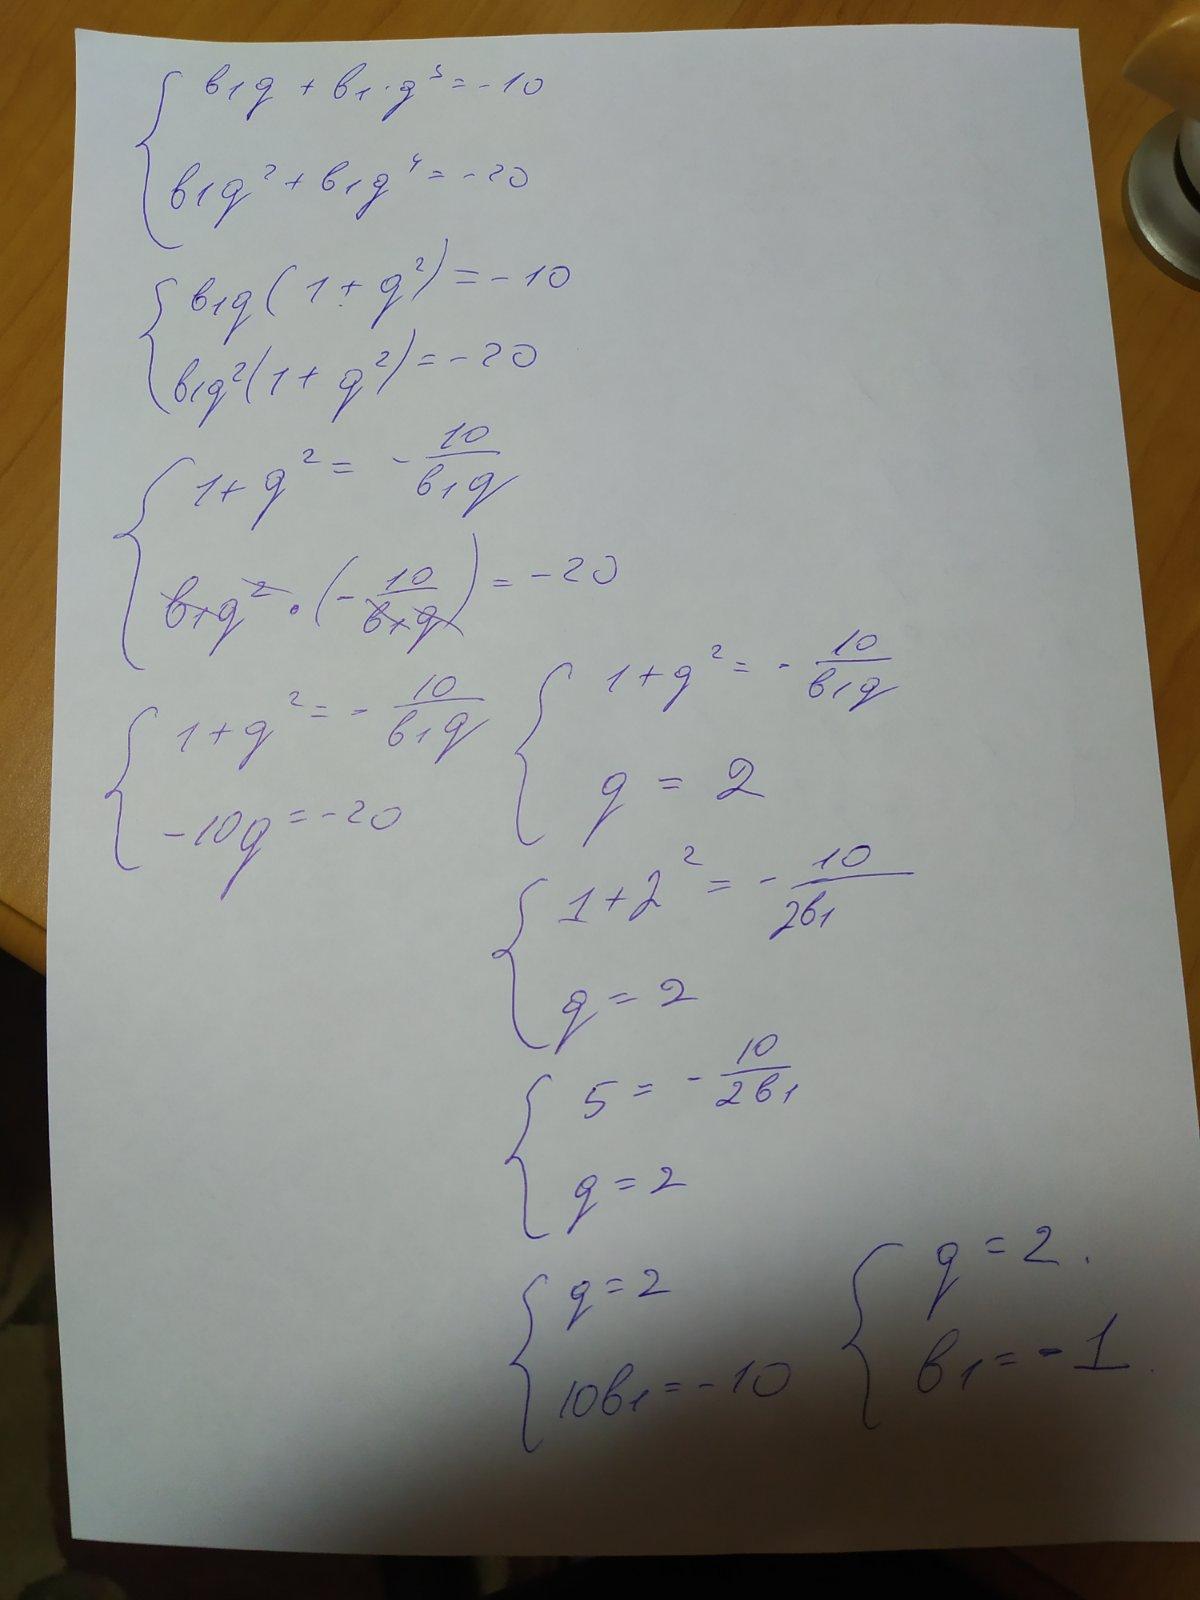 b₁q + b₁·q³ = -10
b₁q² + b₁q⁴ = -20
b₁q(1 + q²) = -10
b₁q²(1 + q²) = -20
1 + q² = -10/(b₁q)
b₁q² · (-10/(b₁q)) = -20
1 + q² = -10/(b₁q)
-10q = -20
1 + q² = -10/(b₁q)
q = 2
1 + 2² = -10/(2b₁)
q = 2
5 = -10/(2b₁)
q = 2
q = 2
10b₁ = -10
q = 2.
b₁ = -1.